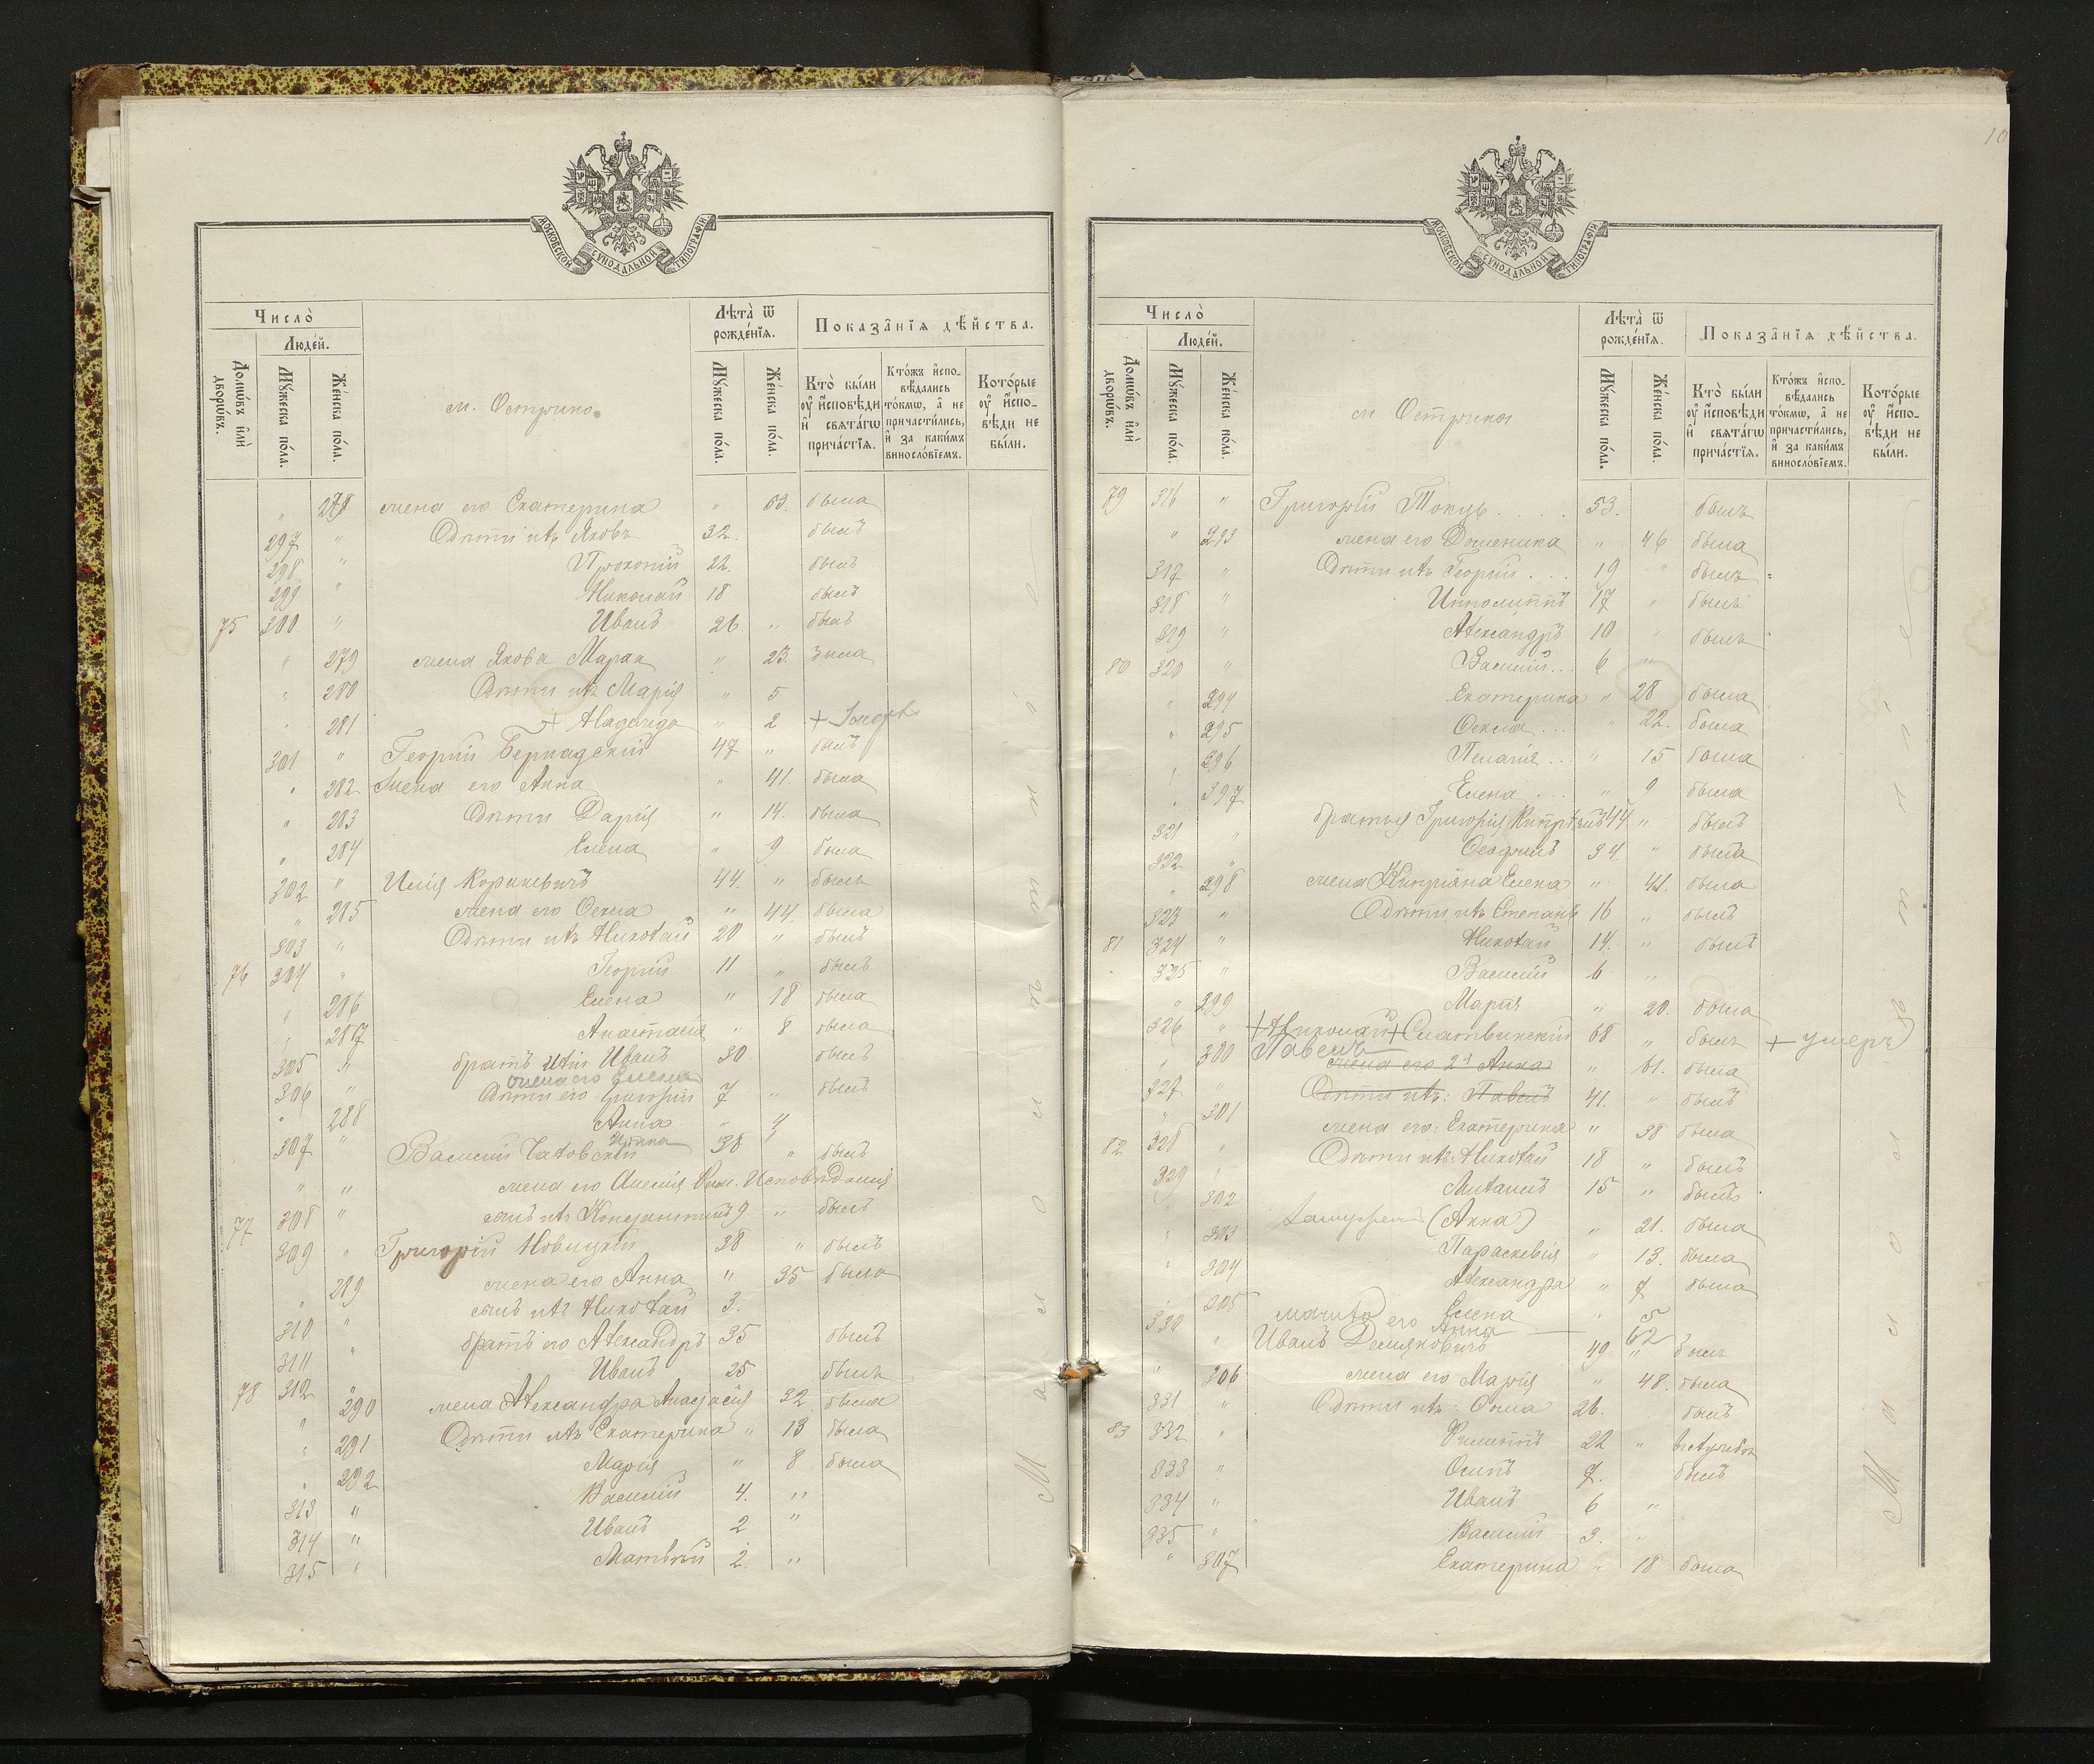 МОСКОВСКОЙ СѴНОДАЛЬНОЙ ТИПОГРАФІИ
Число̀
Людéй.
Домѡ́въ и҆лѝ дворѡ́въ.
Мꙋ́жеска по́ла.
Же́нска по́ла.
м. Острино
Лѣ́та ѿ рожде́нїѧ.
Мꙋ́жеска по́ла.
Же́нска по́ла.
Показа̑нїѧ дѣ́йства.
Кто̀ бы́ли ᲂу҆ и҆сповѣ́ди и҆ свѧта́гѡ прича́стїѧ.
Кто́жъ и҆спо-вѣ́дались то́кмѡ, а҆ не причасти́лись, и҆ за каки́мъ винослóвїемъ.
Кото́рые ᲂу҆ и҆спо-вѣ́ди не бы́ли.
" 278 жена его Екатерина " 53. была
297 " Дѣти ихъ Яковъ 32. былъ
298 " Прокопій 22. былъ
299 " Николай 18 былъ
75 300 " Иванъ 26. " былъ
" 279 жена Якова Мария " 23. была
" 280 Дѣти ихъ Марія " 5
" 281 + Надежда " 2 +
301 " Георгій Бернадскій 47 " былъ
" 282 Жена его Анна " 41. была
" 283 Дѣти Дарія " 14. была
" 284 Елена " 9 была
302 " Илія Корцкевичъ 44. " былъ
" 285 жена его Фекла " 44. была
303 " Дѣти ихъ Николай 20 " былъ
76 304 " Георгій 11 " былъ
" 286 Елена " 18 была
" 287 Анастасія " 8 была
305 " братъ Иліи Иванъ 30 былъ
жена его Елена
306 " Дѣти его Григорій 7 " былъ
" 288 Анна " 4
307 " Василій 38 " былъ
" " жена его Рим. Исповѣданія
77 308 " сынъ ихъ Константинъ 9 " былъ
309 " Григорій Новицкій 38 " былъ
" 289 жена его Анна " 35 была
310 " сынъ ихъ Николай 3.
311 " братъ его Александръ 35 былъ
78 312 " Иванъ 25 былъ
" 290 жена Александра Анастасія 32 была
" 291 Дѣти ихъ Екатерина " 13 была
" 292 Марія " 8 была
313 " Василій 4. "
314 " Иванъ 2 "
315 " Матвѣй 2. "
10
МОСКОВСКОЙ СѴНОДАЛЬНОЙ ТИПОГРАФІИ
Число̀
Людéй.
Домѡ́въ и҆лѝ дворѡ́въ.
Мꙋ́жеска по́ла.
Же́нска по́ла.
м. Острино
Лѣ́та ѿ рожде́нїѧ.
Мꙋ́жеска по́ла.
Же́нска по́ла.
Показа̑нїѧ дѣ́йства.
Кто̀ бы́ли ᲂу҆ и҆сповѣ́ди и҆ свѧта́гѡ прича́стїѧ.
Кто́жъ и҆спо-вѣ́дались то́кмѡ, а҆ не причасти́лись, и҆ за каки́мъ винослóвїемъ.
Кото́рые ᲂу҆ и҆спо-вѣ́ди не бы́ли.
79 316 " Григорій Токць.... 53. былъ
" 293 жена его Доменика " 46 была
317 " Дѣти ихъ Георгій... 19 " былъ
318 " Ипполитъ 17 " былъ
319 " Александръ 10 " былъ
80 320 " Василій... 6 "
" 294 Екатерина " 28 была
" 295 Фекла... " 22. была
" 296 Пелагія.. " 15 была
" 297 Елена... " 9 была
321 " братья Григорія 44 " былъ
322 " Феофилъ 34. " былъ
" 298 жена Кипріана Елена " 41. была
323 " Дѣти ихъ Степанъ 16 " былъ
81 324 " Николай 14. " былъ
325 " Василій 6 "
" 299 Марія " 20. была
326 " + Николай + Сматвинскій 68 " былъ + умеръ
Павелъ
" 300 жена его 2я Анна " 61. была
327 " Дѣти ихъ: Павелъ 41. " былъ
" 301 жена его: Екатерина " 38 была
82 328 " Дѣти ихъ: Николай 18 " былъ
329 " Митанъ 15 " былъ
" 302 (Анна) " 21. была
" 303 Параскевія " 13. была
" 304 Александра " 7 была
" 305 Елена " 5
его Анна — 62
330 " Иванъ Демяновичъ 49 " былъ
" 306 жена его Марія " 48. была
331 " Дѣти ихъ: Фома 26. былъ
83 332 " Филиппъ 22 "
333 " Осипъ 7. былъ
334 " Иванъ 6 "
335 " Василій 3. "
" 307 Екатерина " 18 была